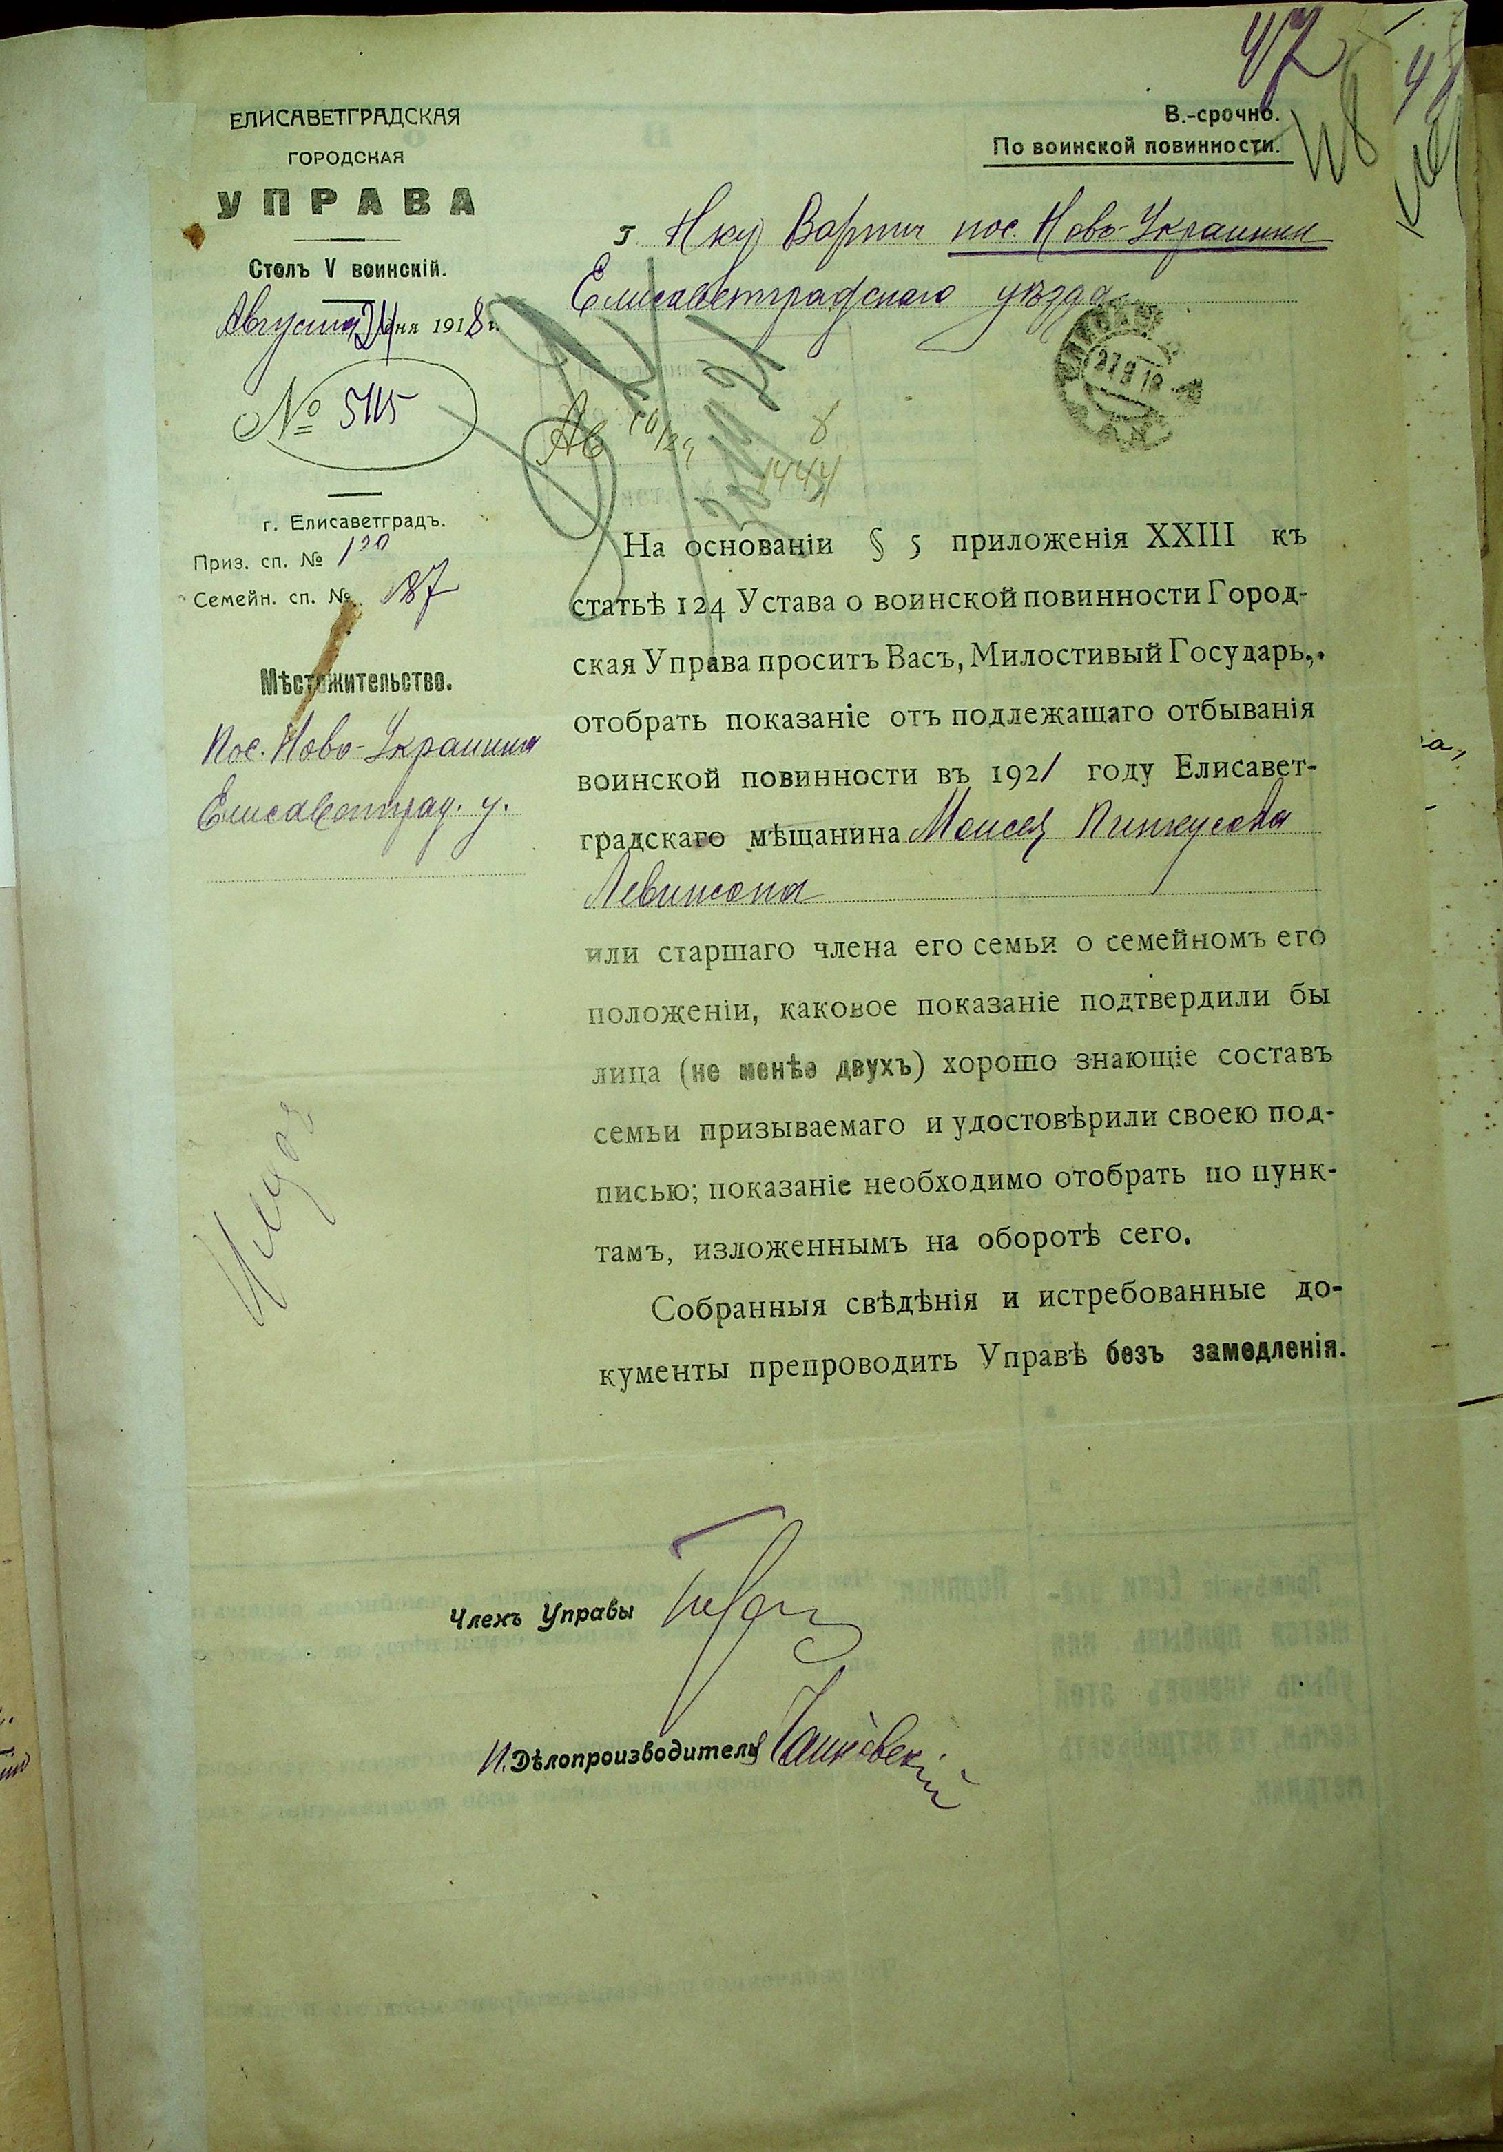 47
48
ЕЛИСАВЕТГРАДСКАЯ
ГОРОДСКАЯ
УПРАВА
Столъ V воинскій.
Августа 24 дня 1918 г.
№ 5115
г. Елисаветградъ.
Приз. сп. № 120
Семейн. сп. № 187
Мѣстожительство.
Пос. Ново-Украинка
Елисаветград. у.
В.-срочно.
По воинской повинности.
г. Нку Варты пос. Ново-Украинки
Елисаветградскаго уѣзда
27 8 18
8
1444
На основаніи § 5 приложенія XXIII къ
статьѣ 124 Устава о воинской повинности Город-
ская Управа проситъ Васъ, Милостивый Государь,
отобрать показаніе отъ подлежащаго отбыванія
воинской повинности въ 1921 году Елисавет-
градскаго мѣщанина Моисея Пинкусова
Левинсона
или старшаго члена его семьи о семейномъ его
положеніи, каковое показаніе подтвердили бы
лица (не менѣе двухъ) хорошо знающіе составъ
семьи призываемаго и удостовѣрили своею под-
писью; показаніе необходимо отобрать по пунк-
тамъ, изложеннымъ на оборотѣ сего.
Собранныя свѣдѣнія и истребованные до-
кументы препроводить Управѣ безъ замедленія.
Членъ Управы
И. Дѣлопроизводителя